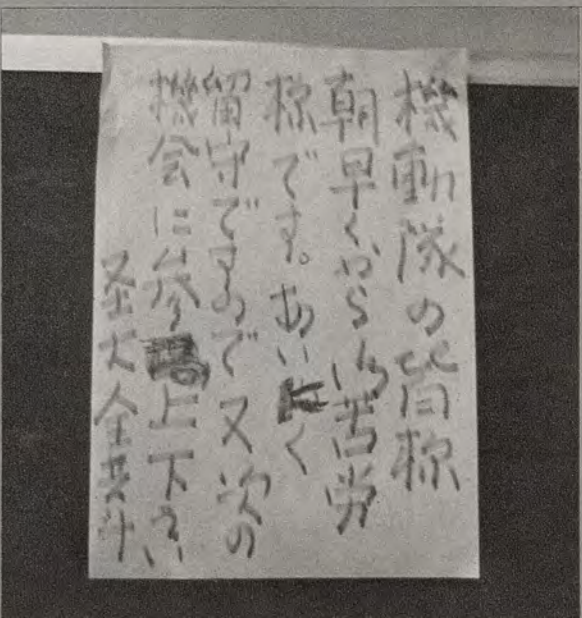 機動隊の皆様
朝早くから御苦労
様です。あいにく
留守ですので又次の
機会に参上下さい
全共斗